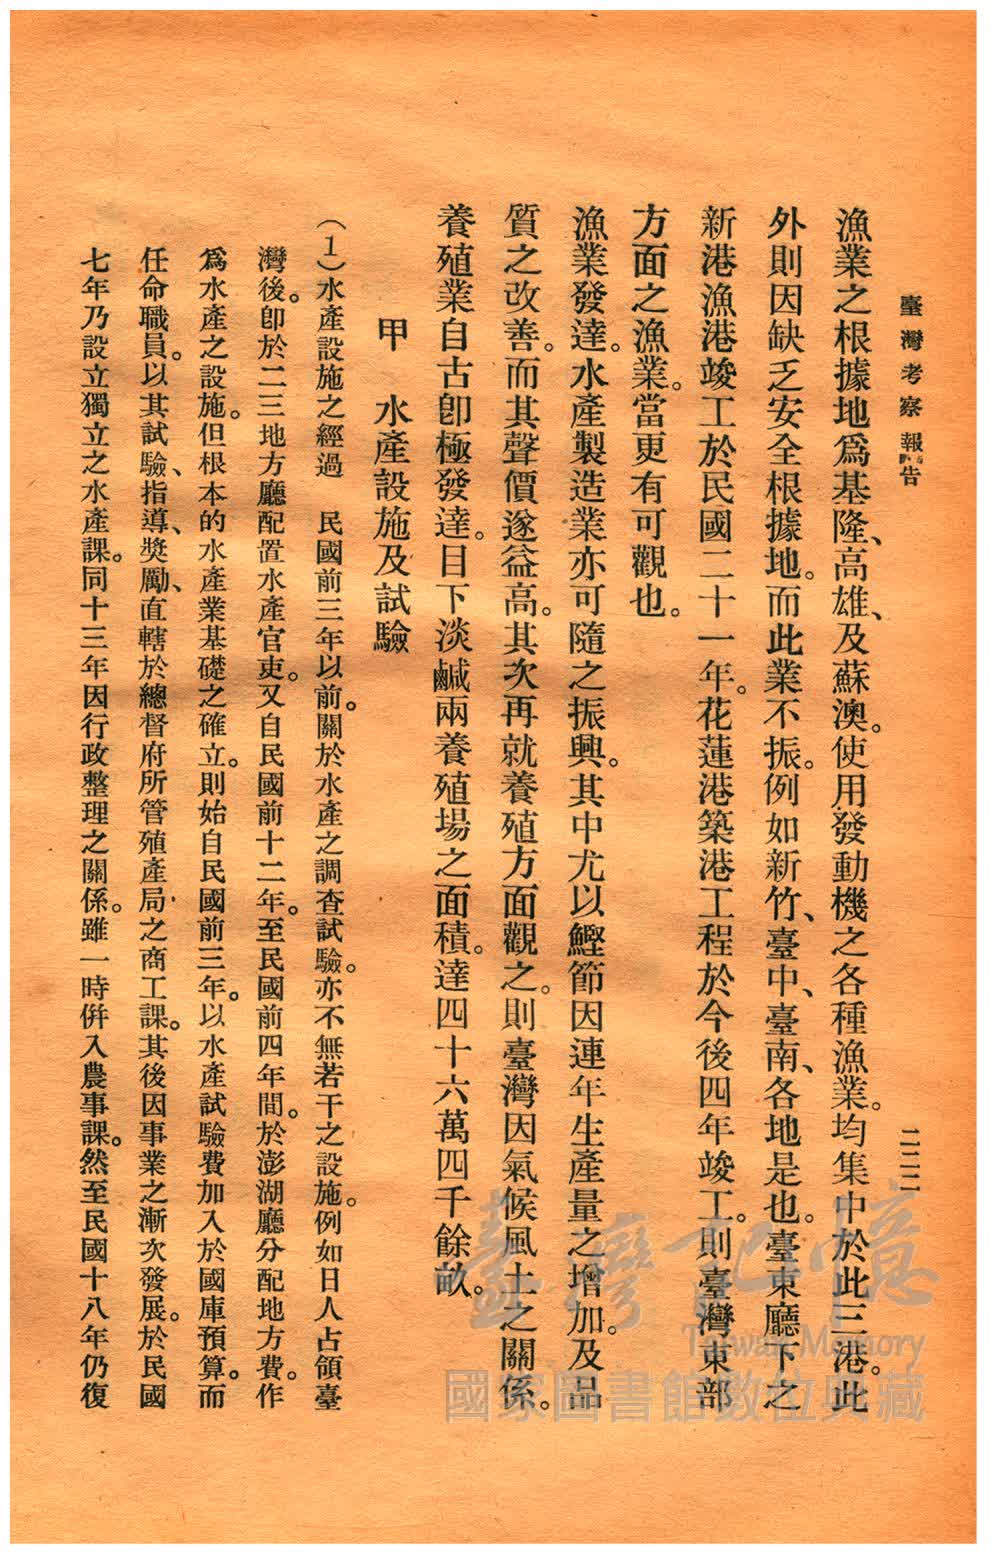 臺灣考察報告
二二二
漁業之根據地爲基隆、高雄、及蘇澳。使用發動機之各種漁業。均集中於此三港。此
外則因缺乏安全根據地。而此業不振。例如新竹、臺中、臺南、各地是也。臺東廳下之
新港漁港竣工於民國二十一年。花蓮港築港工程於今後四年竣工。則臺灣東部
方面之漁業。當更有可觀也。
漁業發達。水產製造業亦可隨之振興。其中尤以鰹節因連年生產量之增加。及品
質之改善。而其聲價遂益高。其次再就養殖方面觀之。則臺灣因氣候風土之關係。
養殖業自古卽極發達。目下淡鹹兩養殖場之面積。達四十六萬四千餘畝。
甲　水產設施及試驗
（1）水產設施之經過　民國前三年以前。關於水產之調查試驗。亦不無若干之設施。例如日人占領臺
灣後。卽於二三地方廳配置水產官吏。又自民國前十二年。至民國前四年間。於澎湖廳分配地方費。作
爲水產之設施。但根本的水產業基礎之確立。則始自民國前三年。以水產試驗費加入於國庫預算。而
任命職員。以其試驗、指導、獎勵、直轄於總督府所管殖產局之商工課。其後因事業之漸次發展。於民國
七年乃設立獨立之水產課。同十三年因行政整理之關係。雖一時倂入農事課。然至民國十八年仍復
臺灣記憶
Taiwan Memory
國家圖書館數位典藏